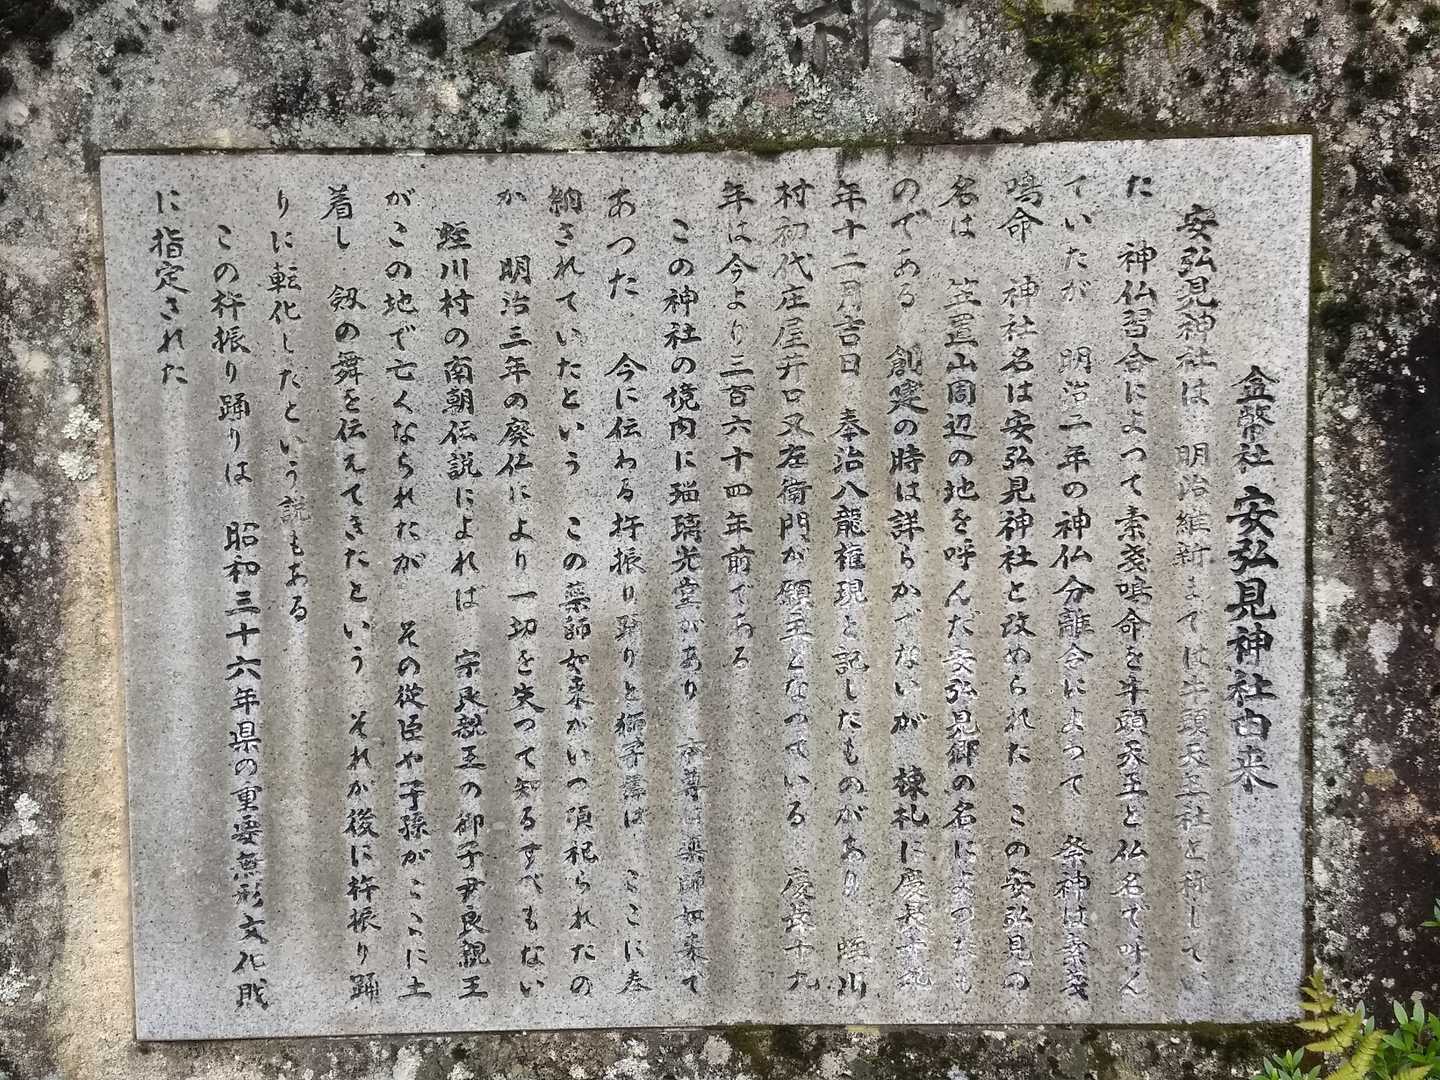 金幣社 安弘見神社由来
安弘見神社は 明治維新までは牛頭天王社と称して
た 神仏習合によって素戔鳴命を牛頭天王と仏名で呼ん
でいたが 明治二年の神仏分離令によって 祭神は素戔
鳴命 神社名は安弘見神社と改められた この安弘見の
名は 笠置山周辺の地を呼んだ安弘見郷の名によつたも
のである 創建の時は詳らかでないが 棟札に慶長
年十二月吉日 奉治八龍権現と記したものがあり 蛭川
村初代庄屋井口又左衛門が願主となつている 慶長十九
年は今より三百六十四年前である
この神社の境内に瑠璃光堂があり 本尊は薬師如来で
あつた 今に伝わる杵振り踊りと獅子舞は ここに奉
納されていたという この薬師如来がいつ頃祀られたの
か 明治三年の廃仏により一切を失つて知るすべもない
蛭川村の南朝伝説によれば 宗良親王の御子尹良親王
がこの地で亡くなられたが その従臣や子孫がここに土
着し 剱の舞を伝えてきたという それが後に杵振り踊
りに転化したという説もある
この杵振り踊りは 昭和三十六年県の重要無形文化財
に指定された